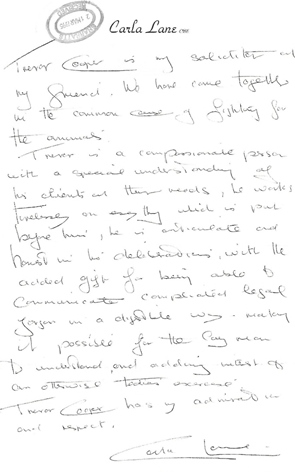 Carla Lane OBE
Trevor Cooper is my solicitor and
my friend. We have come together
in the common cause of fighting for
the animals
Trevor is a compassionate person
with a special understanding of
his clients and their needs, he works
tirelessly on everything which is put
before him, he is articulate and
honest in his deliberations, with the
added gift for being able to
communicate complicated legal
jargon in a digestible way - making
it possible for the lay man
to understand and adding interest to
an otherwise tedious exercise.
Trevor Cooper has my admiration
and respect.
Carla Lane.